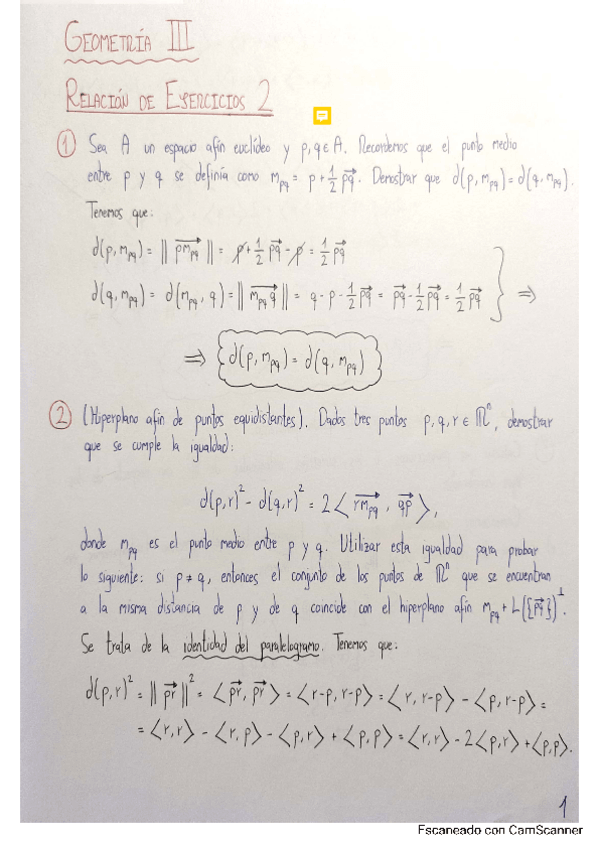 GEOMETRÍA III
RELACIÓN DE EJERCICIOS 2
① Sea A un espacio afín euclídeo y p,q∈A. Recordemos que el punto medio
entre p y q se definía como m_pq = p + 1/2 p⃗q. Demostrar que d(p,m_pq) = d(q,m_pq).
Tenemos que:
d(p,m_pq) = || p⃗m_pq || = p + 1/2 p⃗q - p = 1/2 p⃗q
d(q,m_pq) = d(m_pq, q) = || m_pq⃗q || = q - p - 1/2 p⃗q = p⃗q - 1/2 p⃗q = 1/2 p⃗q } ⇒
⇒ { d(p,m_pq) = d(q,m_pq) }
② (Hiperplano afín de puntos equidistantes). Dados tres puntos p,q,r ∈ ℝⁿ, demostrar
que se cumple la igualdad:
d(p,r)² - d(q,r)² = 2⟨ r⃗m_pq , q⃗p ⟩,
donde m_pq es el punto medio entre p y q. Utilizar esta igualdad para probar
lo siguiente: si p ≠ q, entonces el conjunto de los puntos de ℝⁿ que se encuentran
a la misma distancia de p y de q coincide con el hiperplano afín m_pq + L({p⃗q})^⊥.
Se trata de la identidad del paralelogramo. Tenemos que:
d(p,r)² = || p⃗r ||² = ⟨ p⃗r, p⃗r ⟩ = ⟨r-p, r-p⟩ = ⟨r, r-p⟩ - ⟨p, r-p⟩ =
= ⟨r,r⟩ - ⟨r,p⟩ - ⟨p,r⟩ + ⟨p,p⟩ = ⟨r,r⟩ - 2⟨p,r⟩ + ⟨p,p⟩.
1
Escaneado con CamScanner